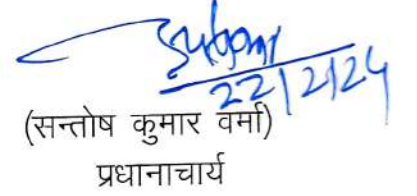 22/2/24
(सन्तोष कुमार वर्मा)
प्रधानाचार्य